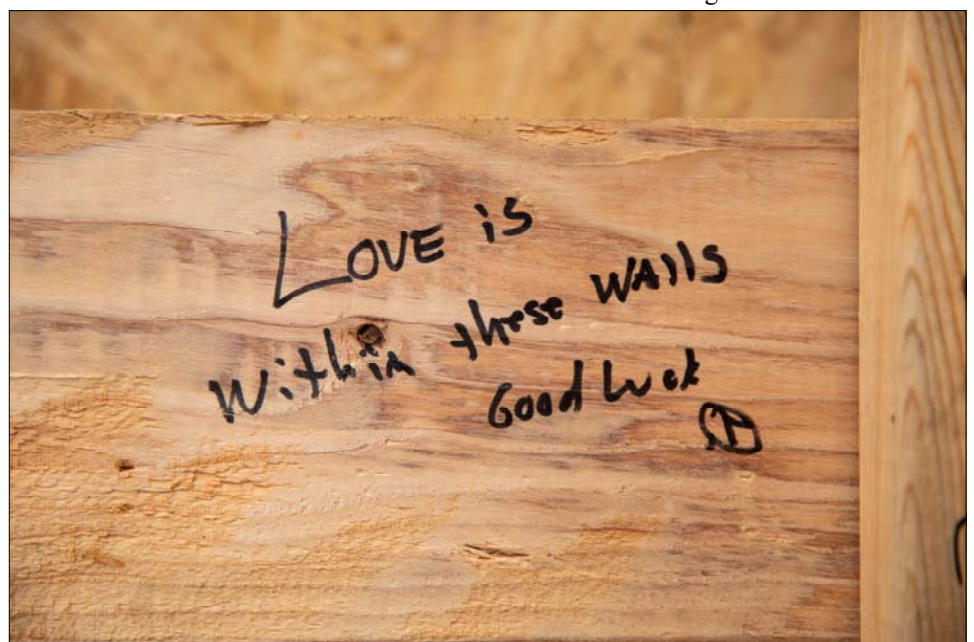 LOVE is
Within these WAllS
Good Luck